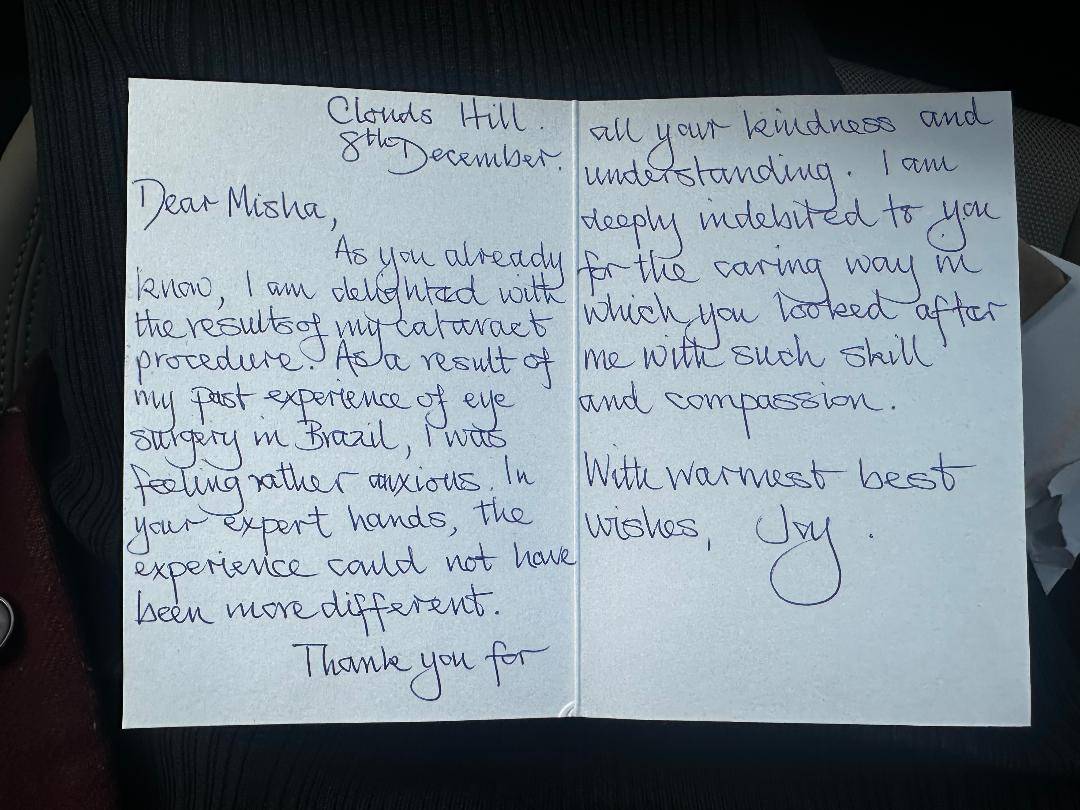 Clouds Hill.
8th December.
Dear Misha,
As you already
know, I am delighted with
the results of my cataract
procedure. As a result of
my past experience of eye
surgery in Brazil, I was
feeling rather anxious. In
your expert hands, the
experience could not have
been more different.
Thank you for
all your kindness and
understanding. I am
deeply indebited to you
for the caring way in
which you looked after
me with such skill
and compassion.
With warmest best
wishes, Joy.